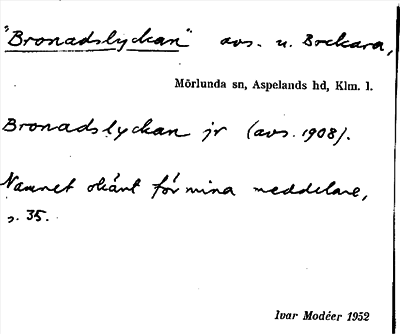 "Bronadslyckan" avs. u. Brekara,
Mörlunda sn, Aspelands hd, Klm. l.
Bronadslyckan jr (avs. 1908).
Namnet okänt för mina meddelare,
s. 35.
Ivar Modéer 1952